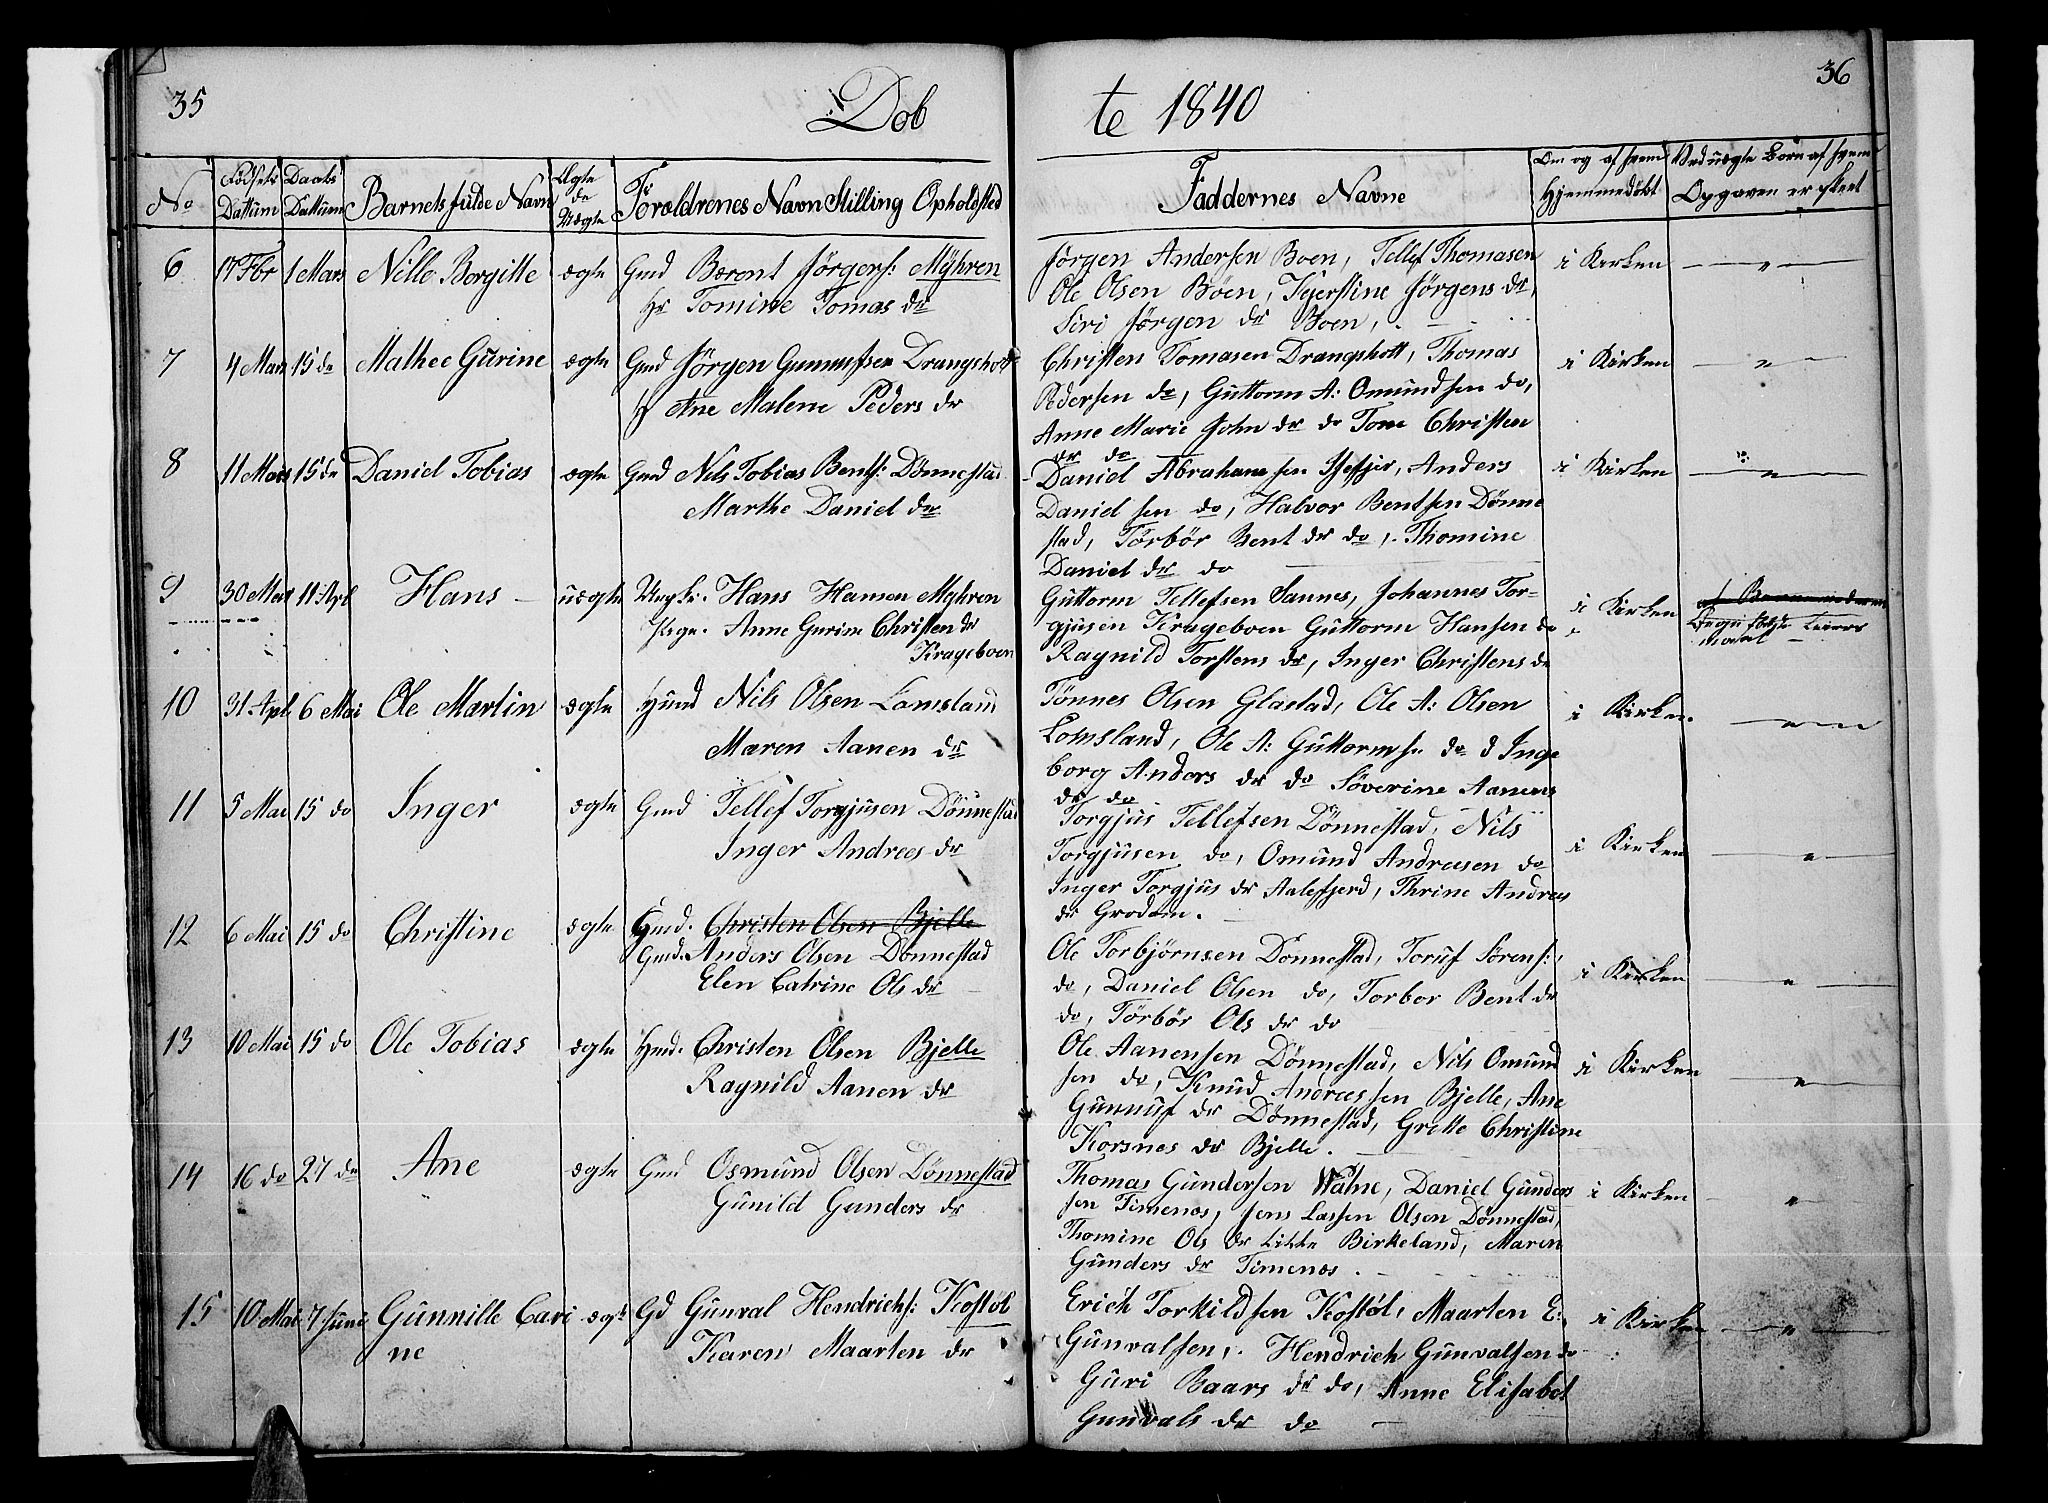 35
Dob
te 1840
36
No
Födsels Dattum
Daabs Dattum
Barnets fulde Navn
Ægte de Uægte
Foreldrenes Navn Stilling Opholdsted
Faddernes Navne
Om og af hvem Hjemmedöbt
Ved uægte Born af hvem Opgaven er skeet
6 17 Fbr 1 Mars Nille Borgitte ægte Gmd Berent Jörgens: Myhren
Hr Tomine Tomas dr
Jörgen Andersen Boen, Tellef Thomasen
Ole Olsen Böen, Kjerstine Jörgens dr,
Siri Jörgen dr Boen,
i Kirken — " —
7 4 Mars 15 do Mathee Gurine ægte Gmd Jörgen Gunnufsen Drangshott
Ane Malene Peders dr
Christen Tomasen Drangshott, Thomas
Pedersen do, Guttorm A: Omundsen do,
Anne Marie John dr do Tone Christen
dr do
i Kirken — " —
8 11 Mars 15 do Daniel Tobias ægte Gmd Nils Tobias Bents: Dönnestad
Marthe Daniel dr
Daniel Abrahamsen, Anders
Daniel sen do, Halvor Bentsen Dönne
stad, Törbör Bent dr do, Thomine
Daniel dr do
i Kirken — " —
9 30 Mars 11 Apl Hans — uægte Ungk. Hans Hansen Myhren
Pige. Anne Gurine Christen dr
Krageboen
Guttorm Tellefsen Sannes, Johannes Tor-
gjusen Krageboen Guttorm Hansen do
Ragnild Torstens dr, Inger Christens dr
i Kirken
Leiers
maal —
10 31 Apl 6 Mai Ole Martin ægte Hmd Nils Olsen Lomsland
Maren Aanen dr
Tönnes Olsen Glastad, Ole A: Olsen
Lomsland, Ole A: Guttorms. do d Inge
borg Anders dr do Söverine Aanens
dr do
i Kirken — " —
11 5 Mai 15 do Inger ægte Gmd Tellef Torgjusen Dönnestad
Inger Andrees dr
Torgjus Tellefsen Dönnestad, Nils
Torgjusen do, Omund Andreesen do
Inger Torgjus dr Aalefjerd, Thrine Andreas
dr Grodom.
i Kirken — " —
12 6 Mai 15 do Christine ægte Gmd. Christen Olsen Bjelle
Gmd. Anders Olsen Dönnestad
Elen Catrine Ols dr
Ole Torbjörnsen Donnestad, Toruf Sörens:,
do, Daniel Olsen do, Torbor Bent dr
do, Törbör Ols dr do
i Kirken — " —
13 10 Mai 15 do Ole Tobias ægte Hmd. Christen Olsen Bjelle
Ragnild Aanen dr
Ole Aanensen Dönnestad, Nils Omund
sen do, Knud Andreessen Bjelle, Ane
Gunnuf dr Dönnestad, Grette Christine
Korsnes dr Bjelle.
i Kirken — " —
14 16 do 27 do Ane ægte Gmd Osmund Olsen Dönnestad
Gunild Gunders dr
Thomas Gundersen Watne, Daniel Gunders
sen Timenes, Jens Lassen Olsen Dönnestad,
Thomine Ols dr Lille Birkeland, Maren
Gunders dr Timenes.
i Kirken "
15 10 Mai 7 Juni Gunnille Cari ægt Gd Gunval Hendrichs: Kostöl
ne Karen Maarten dr
Erich Torkildsen Kostöl, Maarten E:
Gunvalsen, Hendrich Gunvalsen do
Guri Baars dr do, Anne Elisabet
Gunvals dr do —
i Kirken — " —